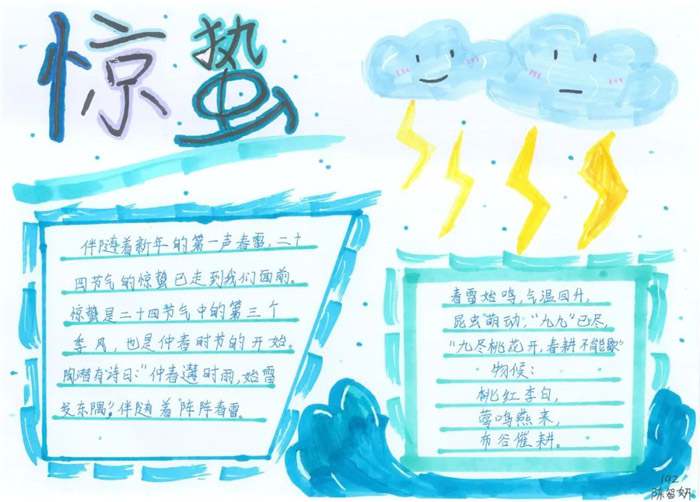 惊蛰
伴随着新年的第一声春雷,二十
四节气的惊蛰已走到我们面前。
惊蛰是二十四节气中的第三个
季风,也是仲春时节的开始。
陶潜有诗曰:"仲春遘时雨,始雷
发东隅"伴随着阵阵春雷。
春雷始鸣,气温回升,
昆虫萌动,"九九"已尽,
"九尽桃花开,春耕不能歇"
物候:
桃红李白,
莺鸣燕来,
布谷催耕。
192